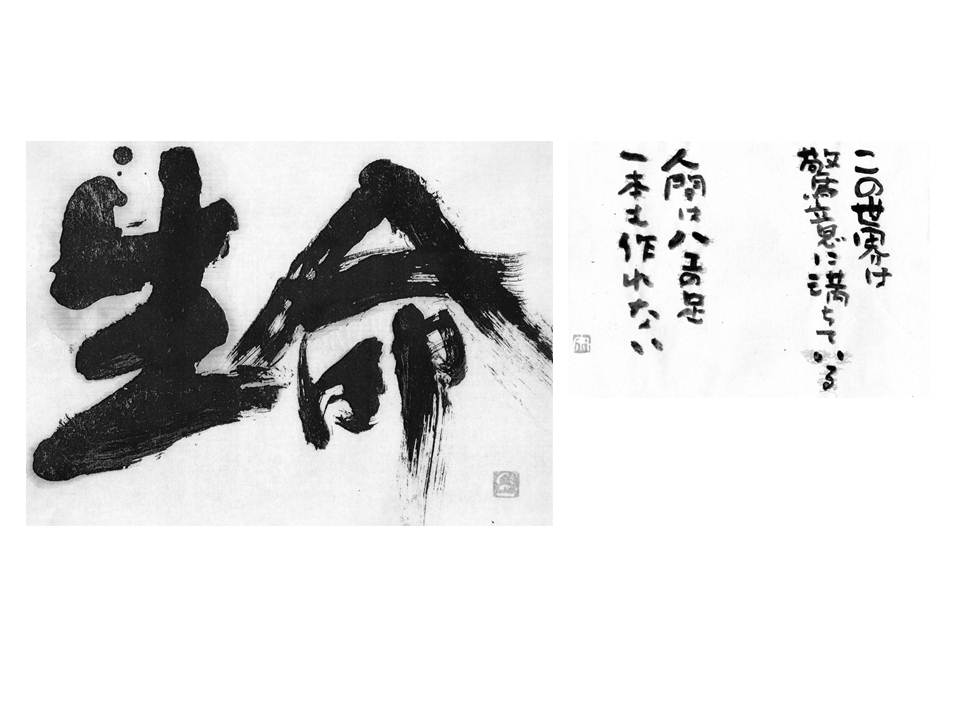 生命
この世界は
驚意に満ちている
人間はハエの足
一本も作れない